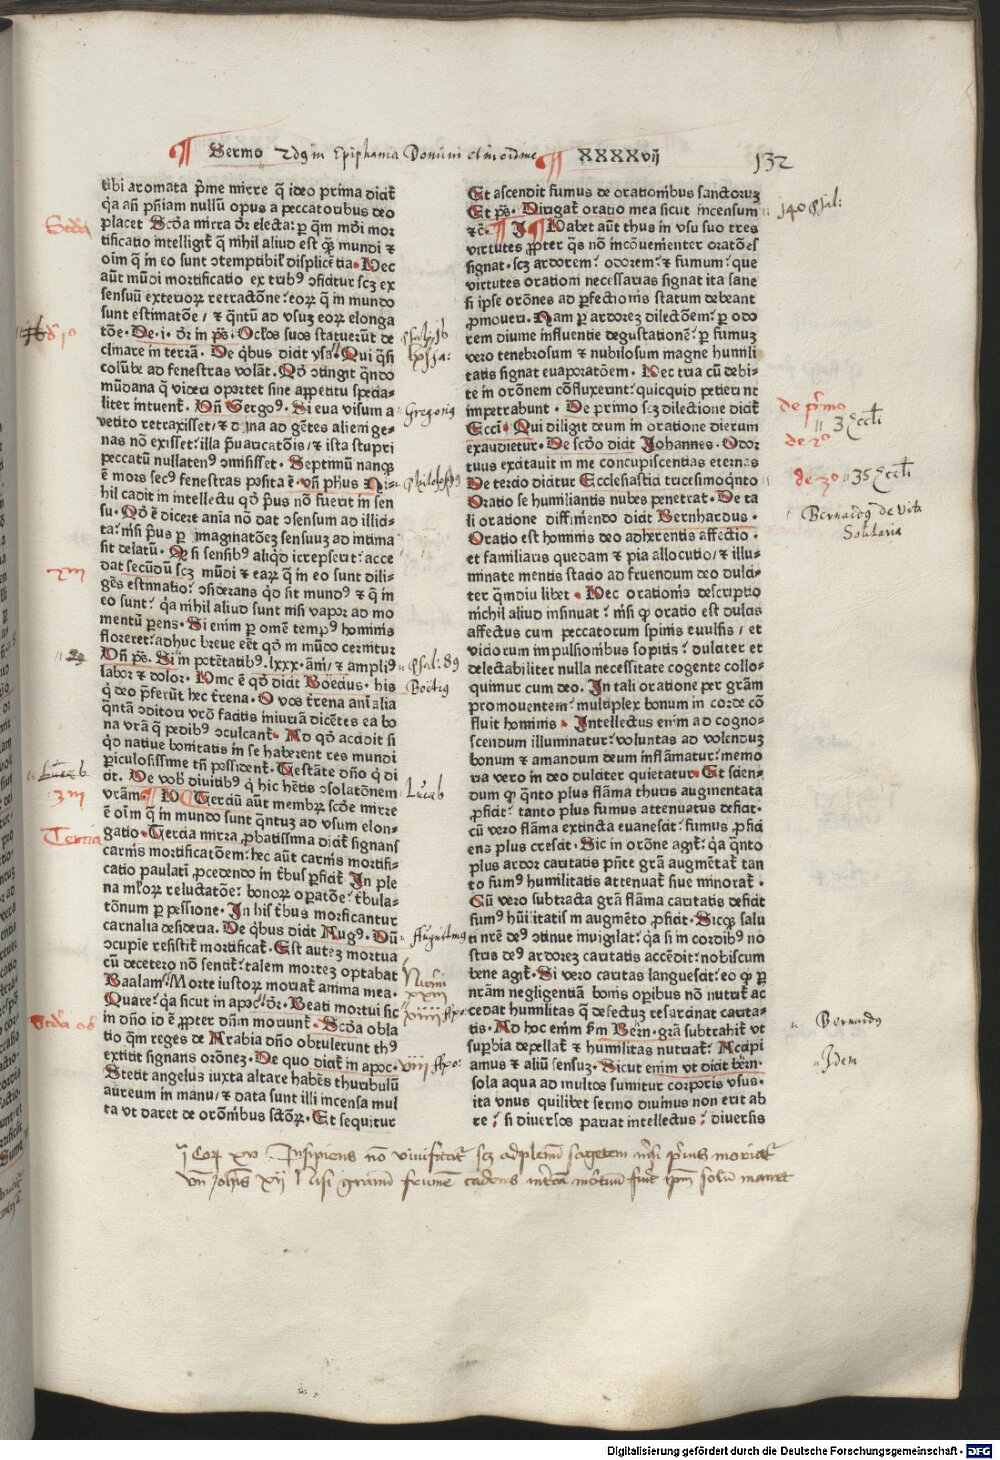 Sermo 2dꝯ in Epiphania Domini et in ordine XXXXvij
132
tibi aromata p̄me mirre q̄ ideo prima dicit᷑
q̄a an̄ pn̄iam nullū opus a peccatoribus deo
placet Scd̄a mirra dr̄ electa: ꝑ qm̄ mōi mor
tificatio intelligit᷑ q̄ nihil aliud est qꝫ mundi ⁊
oīm q̄ in eo sunt ↄtemptibil᷑ displicētia. Nec
aūt mūdi mortificatio ex tribꝯ ↄficitur scꝫ ex
sensuū exteriorꝝ retractōne: eorꝝ q̄ in mundo
sunt estimatōe / ⁊ q̄ntū ad vsuꝫ eorꝝ elonga
tōe. De .i. dr̄ in ps̄. Oclōs suos statuerūt de
clinare in terrā. De qͥbus dicit ysa. Qui q̄si
colūbe ad fenestras volāt. Qō ↄtingit qn̄do
mūdana q̄ videri oportet sine appetitu specia
liter intuent᷑. Vn̄ Gergoꝯ. Si eua visum a
vetito retraxisset / ⁊ dina ad gētes alienige-
nas nō exisset: illa p̄uaricatōis / ⁊ ista stupri
peccatū nullatenꝯ ↄmisisset. Septimū nanqꝫ
ē mors secꝯ fenestras posita ē. vn̄ phūs Ni-
hil cadit in intellectu qō pͥus nō fuerit in sen
su. Qō ē dicere aīa nō dat ↄsensum ad illici-
ta: nisi pͥus ꝑ imaginatōeꝫ sensuuꝫ ad intima
sit delatū. Qꝫ si sensibꝯ aliqͥd irrepserit: acce
dat secūdū scꝫ mūdi ⁊ earꝝ q̄ in eo sunt dili-
gēs estimatio: ↄsiderans qō sit mundꝯ ⁊ q̄ in
eo sunt: q̄a nihil aliud sunt nisi vapor ad mo
mentū ꝑens. Si enim ꝑ omē tempꝯ hominis
floreret: adhuc breue eēt qō in mūdo cernitur
Vn̄ ps̄. Si in potētatibꝯ .lxxx. āni / ⁊ ampliꝯ
labor ⁊ dolor. Hinc ē qō dicit Boecius. his
q̄ deo p̄ferūt hec t̄rena. O vos t̄rena animalia
q̄ntā ↄditori vrō facitis iniuriā dicētes ea bo
na vrā q̄ pedibꝯ ↄculcant᷑. Ad qō accidit si
qō natiue bonitatis in se haberent res mundi
ꝑiculosissime tn̄ possident᷑. Testāte dn̄o q̄ di
cit. De vob̄ diuitibꝯ q̄ hic hētis ↄsolatōnem
vrām. Terciū aūt membrꝝ scd̄e mirre
ē oīm q̄ in mundo sunt q̄ntuꝫ ad vsum elon-
gatio. Tercia mirra ꝓbatissima dicit᷑ signans
carnis mortificatōem: hec aūt carnis mortifi-
catio paulati ꝓcedendo in tͥbus ꝑficit᷑ In ple
na mlōrꝝ reluctatōe: bonorꝝ opatōe: tͥbula-
tōnum ꝑpessione. In his tͥbus morificantur
carnalia desideria. De qͥbus dicit Augꝯ. Dū
ↄcupie resistit᷑ mortificat᷑. Est auteꝫ mortua
cū decetero nō sentit᷑: talem morteꝫ optabat
Baalam. Morte iustorꝝ moriat᷑ anima mea.
Quare: q̄a sicut in apoc̄ dr̄. Beati mortui sic
in dn̄o id ē ꝓpter dn̄m moriunt᷑. Scd̄a obla
tio qm̄ reges de Arabia dn̄o obtulerunt thꝯ
extitit signans orōneꝫ. De quo dicit᷑ in apoc.
Stetit angelus iuxta altare habēs thuribulū
aureum in manu / ⁊ data sunt illi incensa mul
ta vt daret de orōnibus sctōꝝ. Et sequitur
Et ascendit fumus de orationibus sanctoruꝫ
Et ps̄. Dirigat᷑ oratio mea sicut incensum
⁊c̄. Habet aūt thus in vsu suo tres
virtutes ꝓpter q̄s nō incōuenienter oratōes
signat. scꝫ ardorem: odorem: ⁊ fumum: que
virtutes orationi necessarias signat ita sane
si ipse orōnes ad ꝑfectionis statum debeant
ꝓmoueri. Nam ꝑ ardoreꝫ dilectōem: ꝑ odo
rem diuine influentie degustationē: ꝑ fumuꝫ
vero tenebrosum ⁊ nubilosum magne humili
tatis signat euaporatōem. Nec tria cū debi-
te in orōnem cōfluxerint: quicquid petieriнt
impetrabunt. De primo scꝫ dilectione dicit᷑
Ecci. Qui diligit deum in oratione dierum
exaudietur. De scd̄o dicit Johannes. Odor
tuus excitauit in me concupiscentias eternas
De tercio dicitur Ecclesiastici tricesimoqͥnto
Oratio se humiliantis nubes penetrat. De ta
li oratione diffiniendo dicit Bernhardus.
Oratio est hominis deo adherentis affectio.
et familiaris quedam ⁊ pia allocutio / ⁊ illu-
minate mentis stacio ad fruendum deo dulci-
ter q̄mdiu libet. Nec orationis descriptio
nichil aliud insinuat: nisi ꝙ oratio est dulcis
affectus cum peccatorum spinis euulsis / et
viciorum impulsionibus sopitis: dulciter et
delectabiliter nulla necessitate cogente collo-
quimur cum deo. In tali oratione per grām
promouentem: multiplex bonum in corde cō
fluit hominis. Intellectus enim ad cogno-
scendum illuminatur: voluntas ad volenduꝫ
bonum ⁊ amandum deum inflāmatur: memo
ria vero in deo dulciter quietatur. Et scien-
dum ꝙ q̄nto plus flāma thuris augmentata
ꝓficit: tanto plus fumus attenuatus deficit.
cū vero flāma extincta euanescit: fumus ꝓfici
ens plus crescit. Sic in orōne agit᷑: q̄a q̄nto
plus ardor caritatis pn̄te grā augmētat᷑ tan
to fumꝯ humilitatis attenuat᷑ siue minorat᷑.
Cū vero subtracta grā flāma caritatis deficit
fumꝯ hūilitatis in augmēto ꝓficit. Sicqꝫ salu
ti nr̄e deꝯ ↄtinue inuigilat: q̄a si in cordibꝯ no
stris deꝯ ardoreꝫ caritatis accēdit: nobiscum
bene agit᷑. Si vero caritas languescit: eo ꝙ ꝑ
nrām negligentiā bonis opibus nō nutrit᷑ ac
cedat humilitas q̄ defectuꝫ resarcinat carita-
tis. Ad hoc enim s̄m Bern̄. grā subtrahit᷑ vt
suꝑbia depellat᷑ ⁊ humilitas nutriat᷑. Accipi
amus ⁊ aliū sensuꝫ. Sicut enim vt dicit bern̄.
sola aqua ad multos sumitur corporis vsus.
ita vnus quilibet sermo diuinus non erit ab
re: si diuersos pariat intellectus: diuersis
Gregoriꝯ
Philosophꝯ
Psal: 89
Boetiꝯ
Luc̄ 6
3m
Tercia
Augustinus
Numeri
xxiii
140 Psal:
de pͥmo
3 Eccl̄i
de 2o
de 3o 35 Eccl̄i
Bernardꝯ de vita
Solitaria
Bernardꝯ
Idem
j Cor xv Insipiens nō viuificat᷑ scꝫ ad plenū sagetem nisi pͥus moriat᷑
vn̄ Johīs xij Nisi granū frumē cadens in terrā mortuū fuit᷑ ipm̄ solū manet
Digitalisierung gefördert durch die Deutsche Forschungsgemeinschaft - DFG